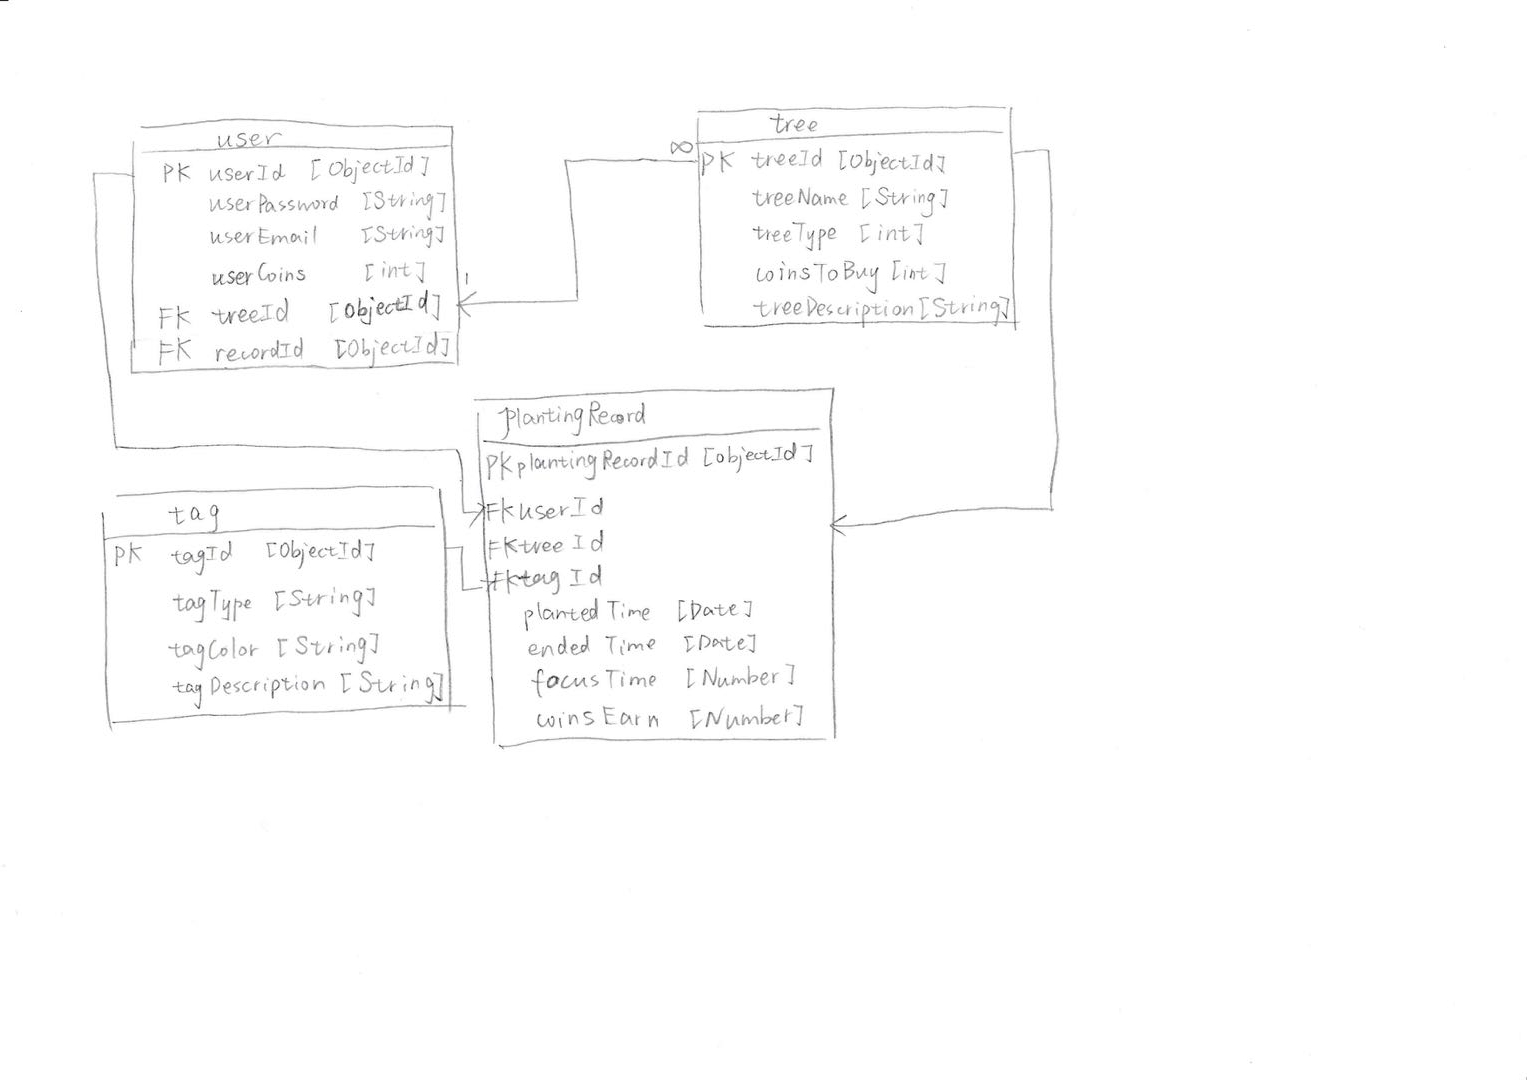 user
PK userId [ObjectId]
userPassword [String]
userEmail [String]
userCoins [int]
FK treeId [ObjectId]
FK recordId [ObjectId]
1
∞
tree
PK treeId [ObjectId]
treeName [String]
treeType [int]
coinsToBuy [int]
treeDescription [String]
plantingRecord
PK plantingRecordId [objectId]
FK userId
FK treeId
FK tagId
plantedTime [Date]
endedTime [Date]
focusTime [Number]
coinsEarn [Number]
tag
PK tagId [ObjectId]
tagType [String]
tagColor [String]
tagDescription [String]